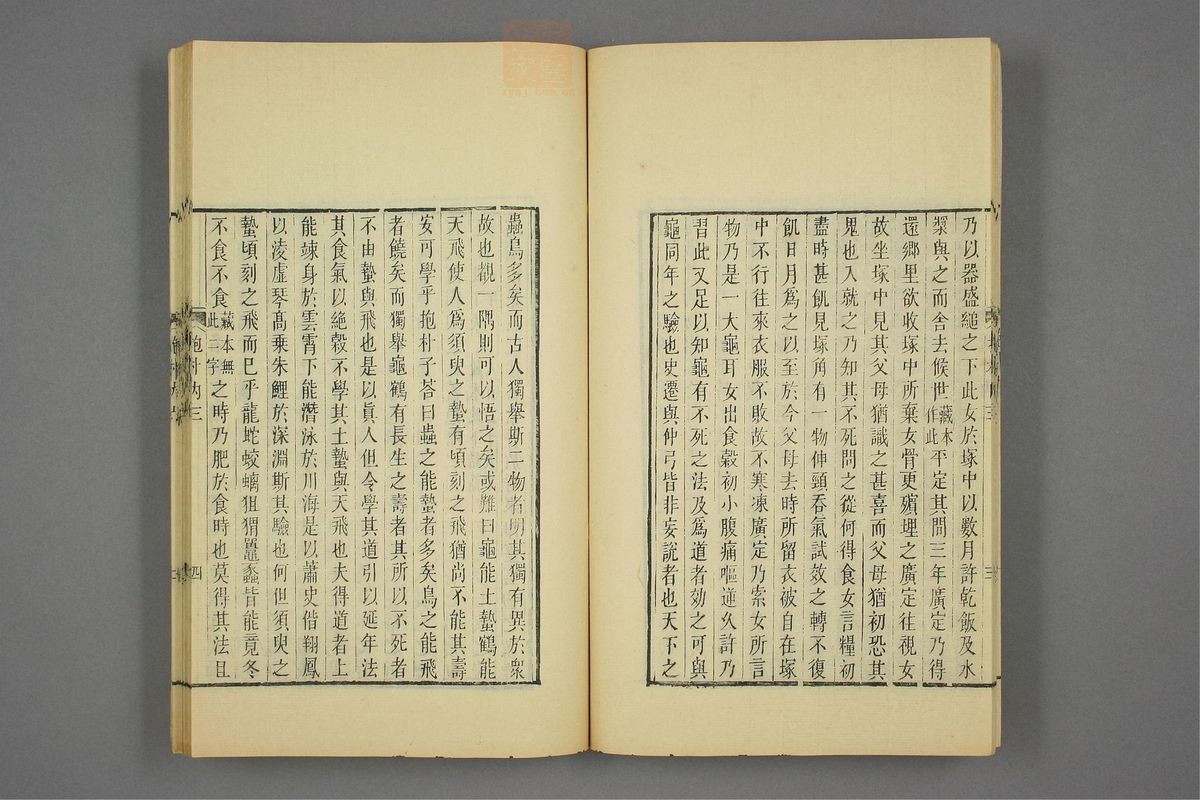 乃以器盛縋之下此女於塚中以數月許乾飯及水
漿與之而舍去候世藏本作此平定其間三年廣定乃得
還鄉里欲收塚中所棄女骨更殯埋之廣定往視女
故坐塚中見其父母猶識之甚喜而父母猶初恐其
鬼也入就之乃知其不死問之從何得食女言糧初
盡時甚飢見塚角有一物伸頸吞氣試效之轉不復
飢日月爲之以至於今父母去時所留衣被自在塚
中不行往來衣服不敗故不寒凍廣定乃索女所言
物乃是一大龜耳女出食穀初小腹痛嘔逆久許乃
習此又足以知龜有不死之法及爲道者効之可與
龜同年之驗也史遷與仲弓皆非妄說者也天下之
蟲鳥多矣而古人獨舉斯二物者明其獨有異於衆
故也覩一隅則可以悟之矣或難曰龜能土蟄鶴能
天飛使人爲須臾之蟄有頃刻之飛猶尚不能其壽
安可學乎抱朴子荅曰蟲之能蟄者多矣鳥之能飛
者饒矣而獨舉龜鶴有長生之壽者其所以不死者
不由蟄與飛也是以眞人但令學其道引以延年法
其食氣以絶穀不學其土蟄與天飛也夫得道者上
能竦身於雲霄下能潛泳於川海是以蕭史偕翔鳳
以淩虛琴高乗朱鯉於深淵斯其驗也何但須臾之
蟄頃刻之飛而已乎龍蛇蛟螭狙猬鼉蠡皆能竟冬
不食不食藏本無此二字之時乃肥於食時也莫得其法且
抱朴内三
四